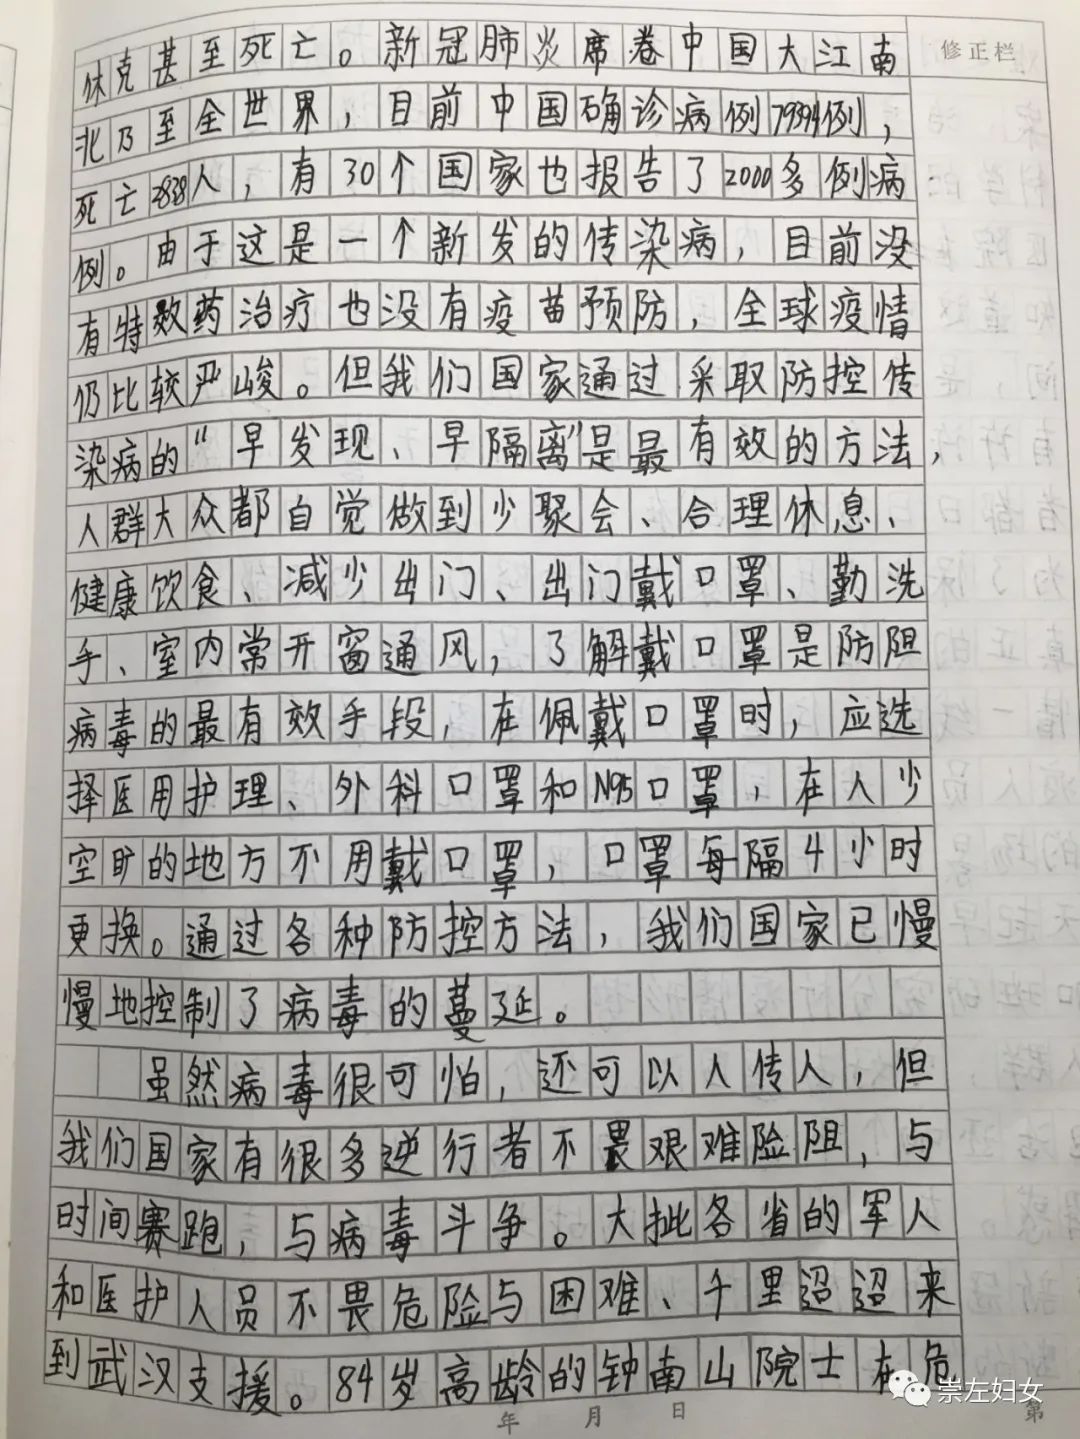 休克甚至死亡。新冠肺炎席卷中国大江南
修正栏
北乃至全世界，目前中国确诊病例79394例，
死亡2838人，有30个国家也报告了2000多例病
例。由于这是一个新发的传染病，目前没
有特效药治疗也没有疫苗预防，全球疫情
仍比较严峻。但我们国家通过采取防控传
染病的“早发现、早隔离”是最有效的方法，
人群大众都自觉做到少聚会、合理休息、
健康饮食、减少出门、出门戴口罩、勤洗
手、室内常开窗通风，了解戴口罩是防阻
病毒的最有效手段，在佩戴口罩时，应选
择医用护理、外科口罩和N95口罩，在人少
空旷的地方不用戴口罩，口罩每隔4小时
更换。通过各种防控方法，我们国家已慢
慢地控制了病毒的蔓延。
虽然病毒很可怕，还可以人传人，但
我们国家有很多逆行者不畏艰难险阻，与
时间赛跑，与病毒斗争。大批各省的军人
和医护人员不畏危险与困难、千里迢迢来
到武汉支援。84岁高龄的钟南山院士在危
崇左妇女
年 月 日 第